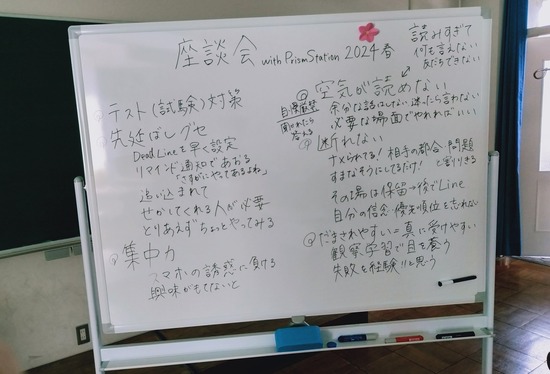 座談会 with PrismStation 2024 春
読みすぎて
何も言えない
あだちできない
@ テスト(試験)対策
@ 先延ばしグセ
DeadLineを早く設定
リマインド通知であおる
「さすがにやってあるよね」
追い込まれて
せかしてくれる人が必要
とりあえずちょっとやってみる
@ 集中力
スマホの誘惑に負ける
興味がもてないと
@ 空気が読めない
余分な話はしない 迷ったら言わない
必要な場面でやれればいい
聞かれたら
答える
@ 断れない
ナメられてる! 相手の都合・問題
すまなそうにしてるだけ! と割りきる
その場は保留→後でLine
自分の信念・優先順位を忘れない
@ だまされやすい=真に受けやすい
観察学習で目を養う
失敗も経験だと思う